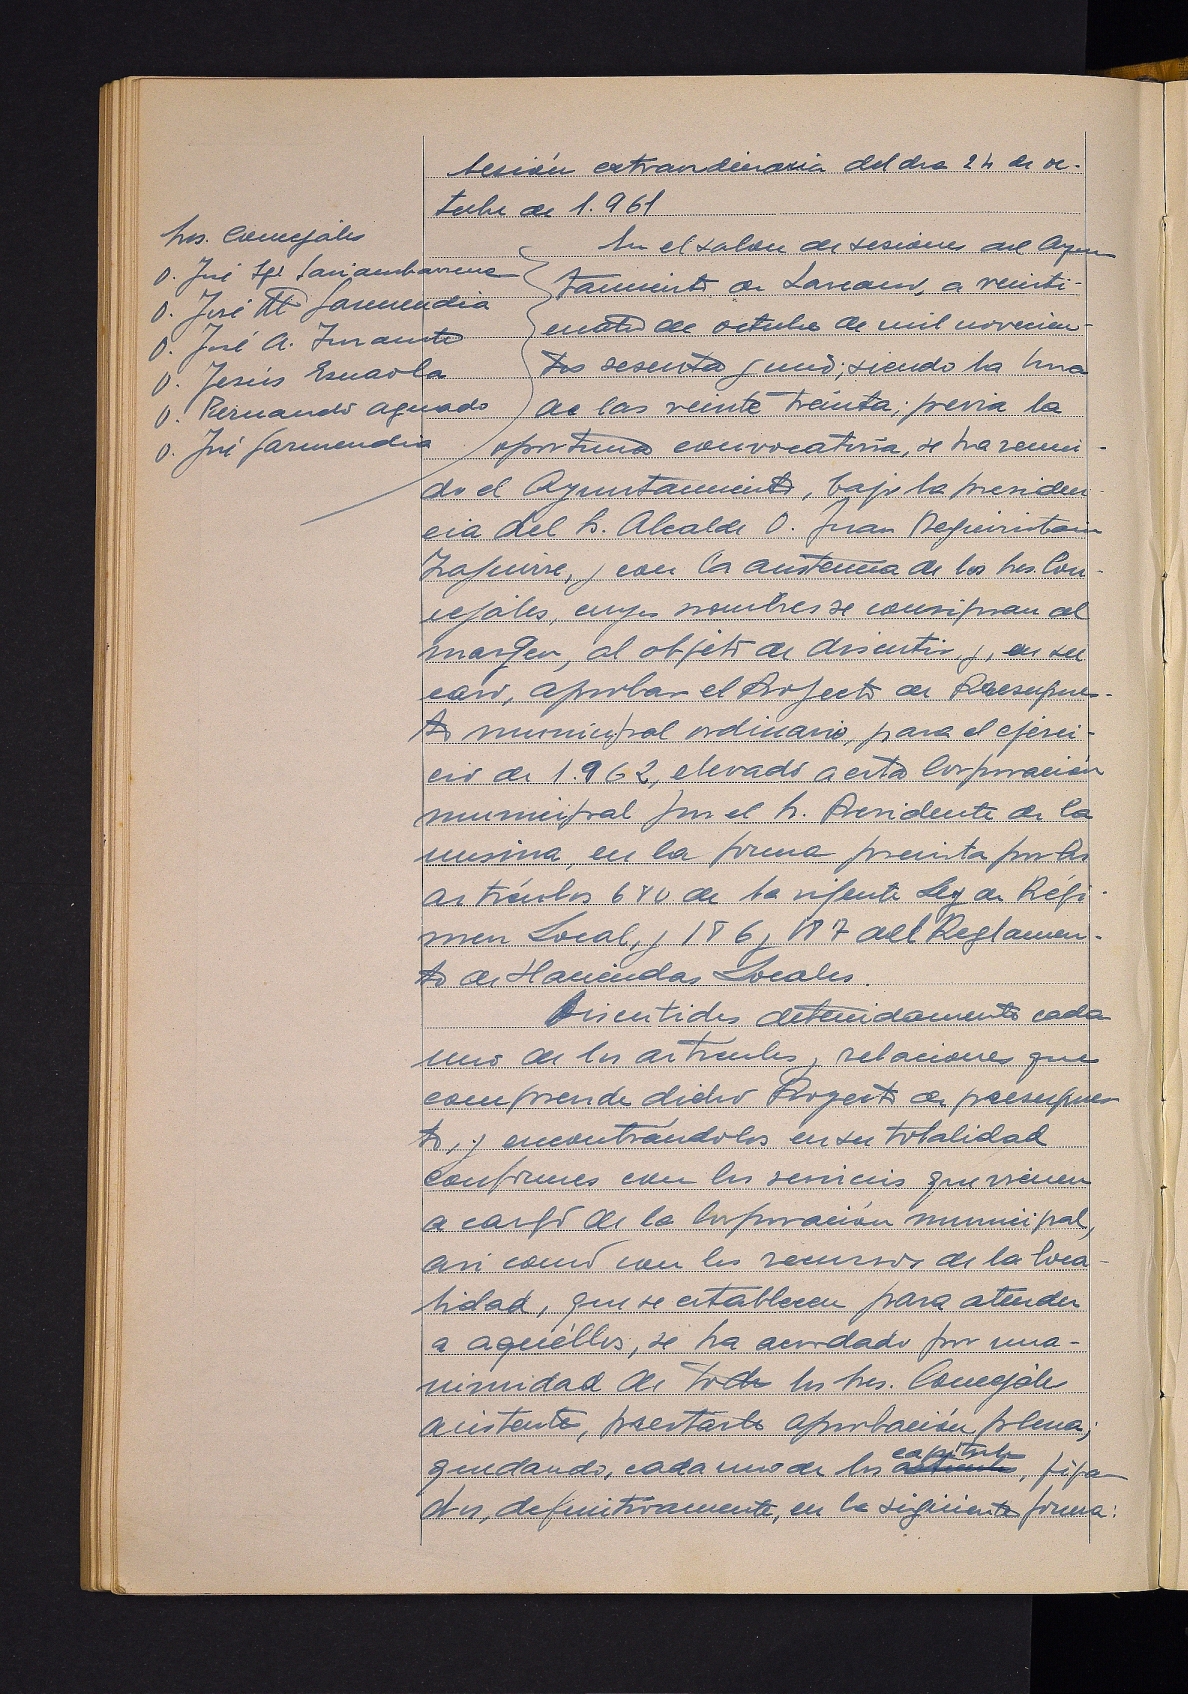 Sesión extraordinaria del dia 24 de oc-
tubre de 1.961
Srs. Concejales
D. José Igº Sarianbarrena
D. José Mª Garmendia
D. José A. Iturrioz
D. Jesús Esnaola
D. Fernando Aguado
D. José Garmendia
En el salon de sesiones del Ayun
tamiento de Lazcano, a veinti-
cuatro de octubre de mil novecien-
tos sesenta y uno; siendo la hora
de las veinte treinta; previa la
oportuna convocatoria, se ha reuni-
do el Ayuntamiento, bajo la presiden-
cia del Sr. Alcalde D. Juan Beguiristain
y con la asistencia de los Srs. Con-
cejales, cuyos nombres se consignan al
margen, al objeto de discutir y, en su
caso, aprobar el Proyecto de Presupues-
to municipal ordinario, para el ejerci-
cio de 1.962, elevado a esta Corporación
municipal por el Sr. Presidente de la
misma, en la forma prevista por los
artículos 680 de la vigente Ley de Régi-
men Local, y 186 y 187 del Reglamen-
to de Haciendas Locales.
Discutidos detenidamente cada
uno de los artículos y relaciones que
comprende dicho Proyecto de presupues
to, y encontrándolos en su totalidad
conformes con los servicios que vienen
a cargo de la Corporación municipal,
asi como con los recursos de la loca-
lidad, que se establecen para atender
a aquéllos, se ha acordado por una-
nimidad de todos los Srs. Concejales
asistentes, prestarle aprobación plena;
quedando, cada uno de los capítulos, fija
dos, definitivamente, en la siguiente forma: